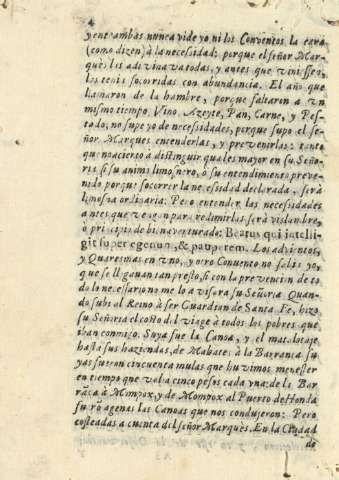 y en e ambas nunca vide yo ni los Conventos la cara
(como dizen) à la necessidad; porque el señor Mar-
quès las adivinava todas, y antes que viniessen,
las tenia socorridas con abundancia. El año que
llamaron de la hambre, porque faltaron a vn
mismo tiempo Vino, Azeyte, Pan, Carne, y Pes-
cado, no supe yo de necesidades, porque supo el se-
ñor Marques entenderlas, y prevenirlas: tanto
que no acierto à distinguir qual es mayor en su Seño-
ria si su animo limosnero, ò su entendimiento preve-
nido porque socorrer la necessidad declarada, serà
limosna ordinaria: Pero entender las necessidades
antes que vengan para redimirlas serà vislumbre,
ò principio de bienaventurado: Beatus qui intelli-
git super egenum, & pauperem. Los advientos,
y Quaresmas en vno, y otro Convento no salis yo,
que se llegauan tan presto, si con la prevencion de to-
do lo necessario no me lo avisara su Señoria. Quan-
do subi al Reino à ser Guardian de Santa Fe, hizo
su Señoria el costo del viage à todos los pobres que
iban conmigo. Suya fue la Canoa, y el matalotaje
hasta sus haziendas, de Mahates à la Barranca su
yas fueron cincuenta mulas que huvimos menester
en tiempo que valia cinco pesos cada vna; de la Bar
rãca à Mompox, y de Mompox al Puerto de Honda
fuerõ agenas las Canoas que nos condujeron: Pero
costeadas a cuenta del señor Marquès. En la Ciudad
de